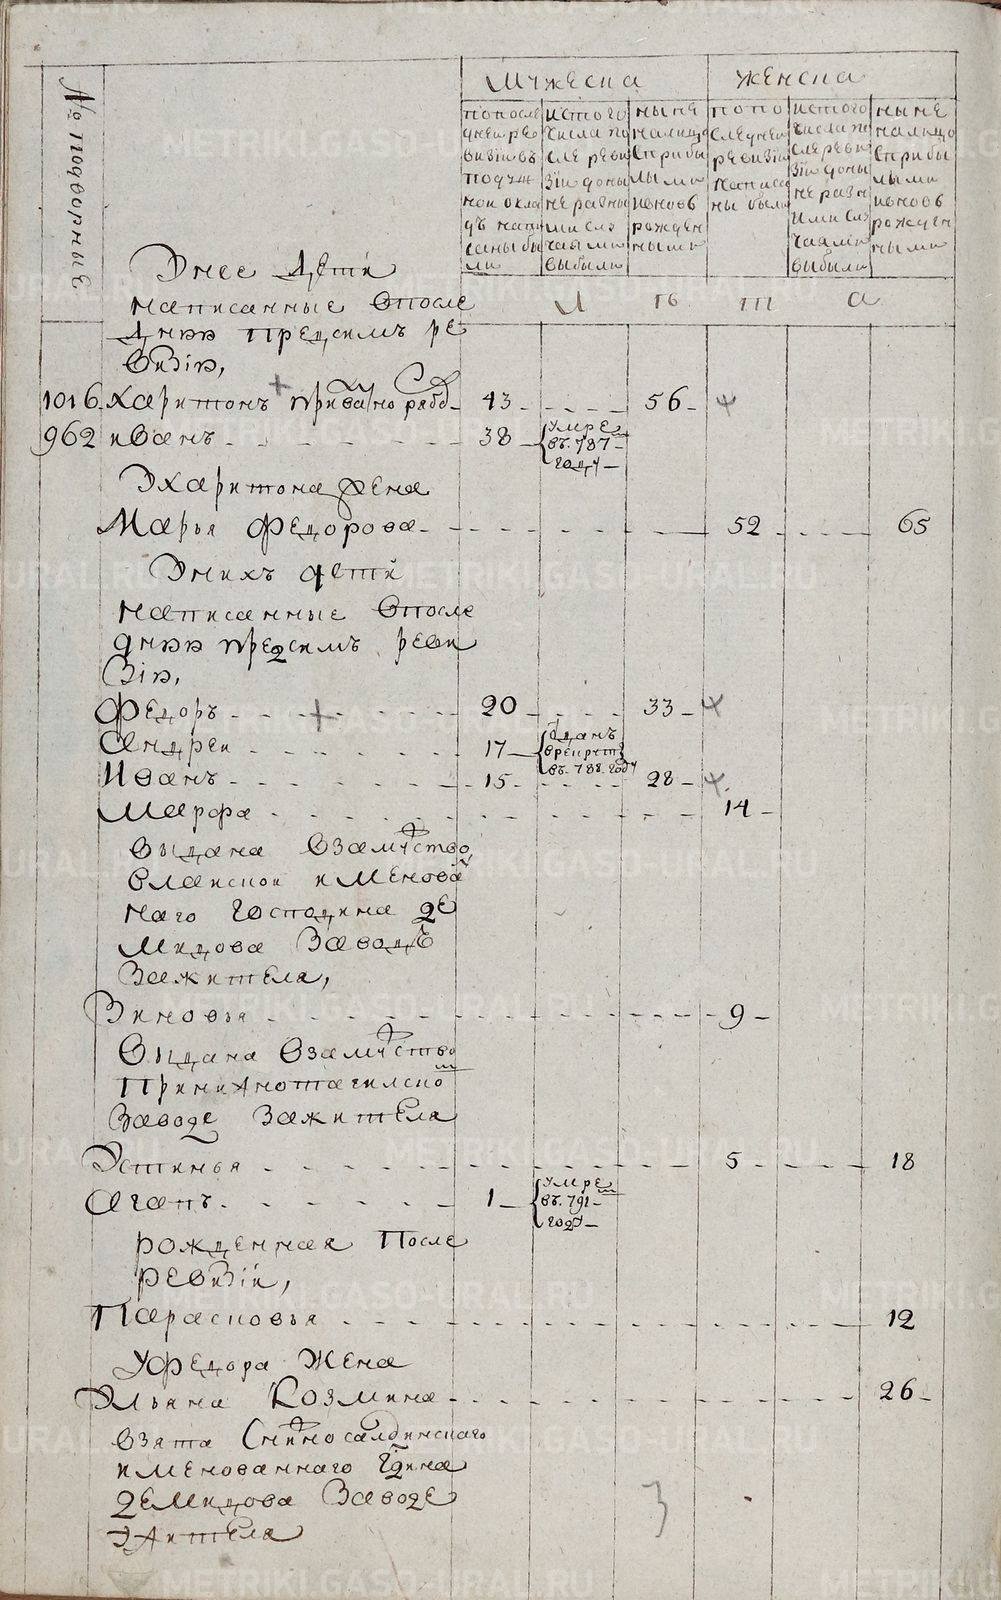 № подворные
мужеска
женска
по после
дней ре
визiи въ
подуш
ной окла
дъ напи
саны бы
ли
ис того
числа по
сле реви
зiи до ны
не разны
ми слу
чаями
выбыли
ныне
на лицо
с прибы
лыми
и вновь
рожден
ными
по по
следней
ревизiи
написа
ны были
ис того
числа по
сле реви
зiи до ны
не разн
ыми слу
чаями
выбыли
ныне
на лицо
с прибы
лыми
и вновь
рожден
ными
Л Ѣ т а
У нее дети
написанные впосле
дняя пред симъ ре
визiя,
1016 харитонъ 43 56
962 иванъ 38 умре
въ. 787
году
У харитона жена
Марья Федорова 52 65
У них дети
написанные впосле
дняя пред симъ реви
зiя,
Федоръ 20 33
Андреи 17 отданъ
врекрут
въ. 788. году
Иванъ 15 28
Марфа 14
выдана взамуство
имянова
наго господина де
мидова заводе
зажителя,
Зиновья 9
выдана взамуство
при нижнотагилско
заводе зажителя
Устинья 5 18
Агапъ 1 умре
въ. 791
году
рожденная После
ревизiи,
Парасковья 12
У федора жена
Ульяна Козмина 26
взята с нижносалдинскаго
имянованнаго гдина
демидова заводе
жителя
3
METRIKI.GASO-URAL.RU